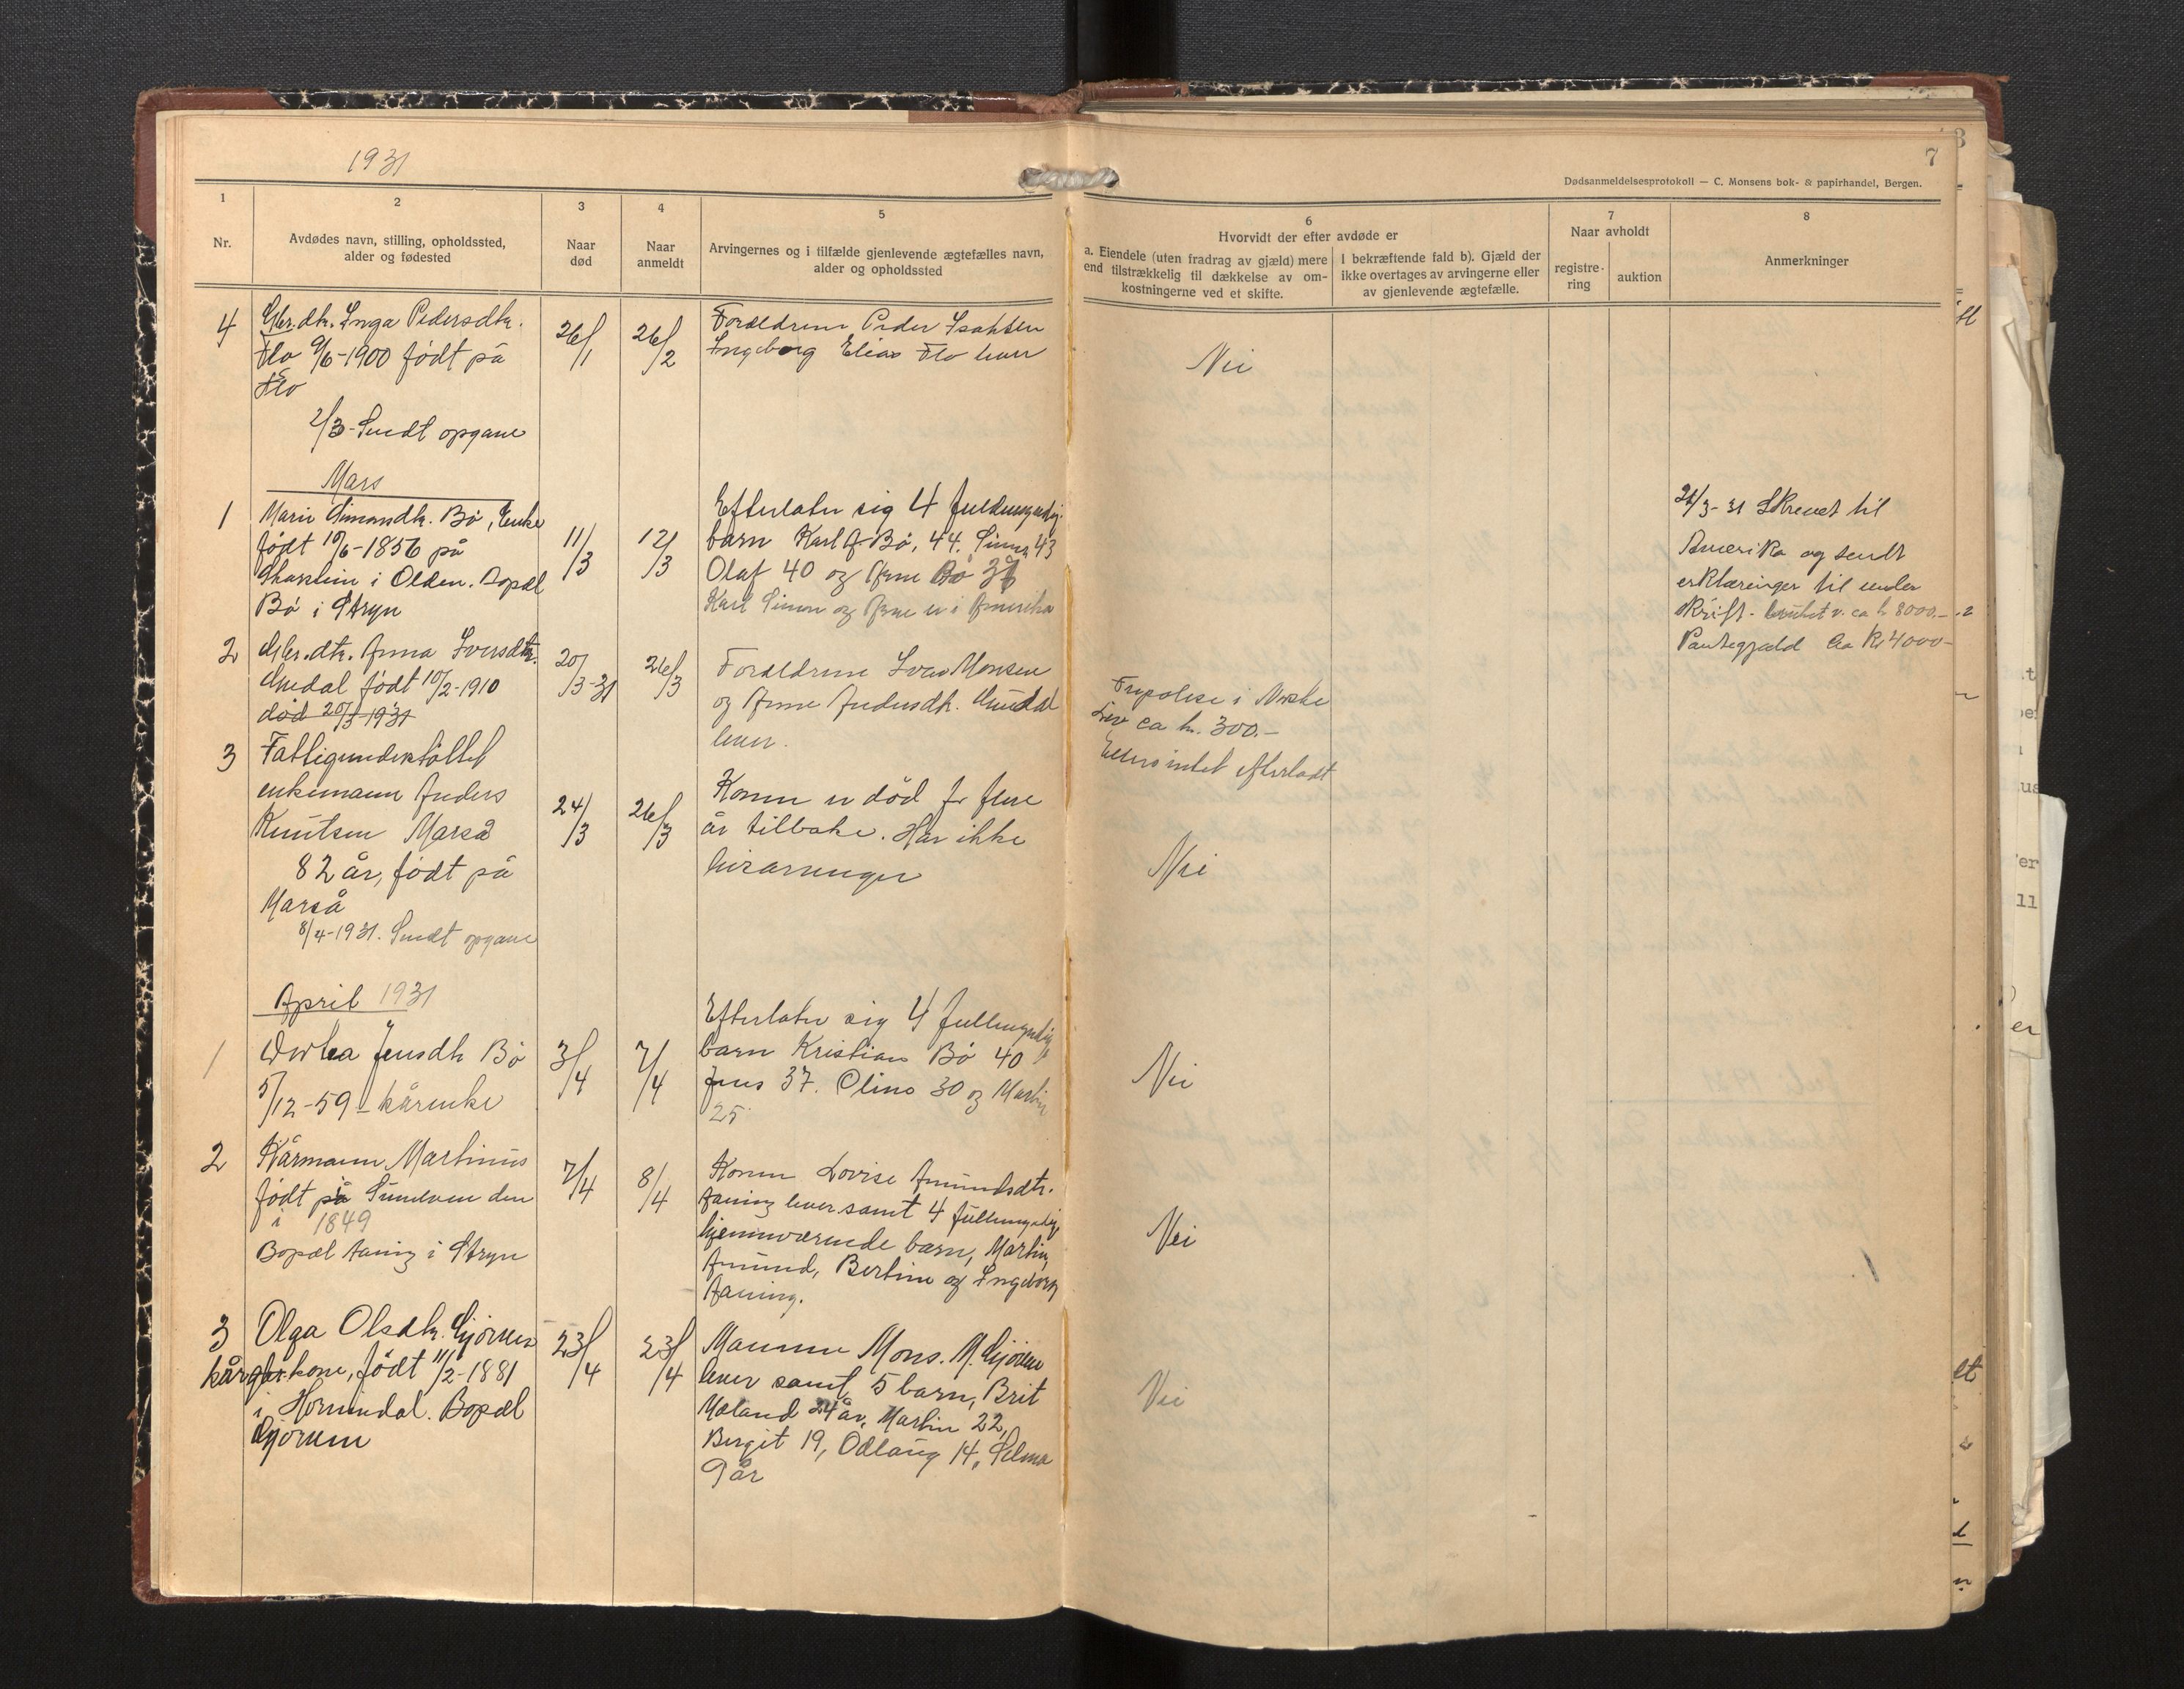 1931
7
Dødsanmeldelsesprotokoll — C. Monsens bok- & papirhandel, Bergen.
1
Nr.
2
Avdødes navn, stilling, opholdssted,
alder og fødested
3
Naar
død
4
Naar
anmeldt
5
Arvingernes og i tilfælde gjenlevende ægtefælles navn,
alder og opholdssted
6
Hvorvidt der efter avdøde er
a. Eiendele (uten fradrag av gjæld) mere
end tilstrækkelig til dækkelse av om-
kostningerne ved et skifte.
I bekræftende fald b). Gjæld der
ikke overtages av arvingerne eller
av gjenlevende ægtefælle.
7
Naar avholdt
registre-
ring
auktion
8
Anmerkninger
4
Gbr.dtr. Inga Pedersdtr.
Flo 9/6-1900 født på
Flo
2/3-Sendt opgave
26/1
26/2
Forældrene Peder Isaksen
Ingeborg Elias Flo lever
Nei
Mars
1
Marie Simondtr. Bø, Enke
født 10/6-1856 på
i Olden. Bopæl
Bø i Stryn
11/3
12/3
Efterlater sig 4 fuldmyndig.
barn Karl A Bø, 44. Simon 43
Olaf 40 og Arne Bø 37
Karl Simon og Arne er i Amerika
26/3-31 Skrevet til
Amerika og sendt
erklæringer til under
skrift. bruket v. ca kr 8000.-
Pantegjæld ca Kr 4000-
2
Gbr.dtr. Anna Iversdtr.
født 10/2-1910
død 20/3-1931
20/3-31
26/3
Forældrene Iver Monsen
og Anne Andersdtr.
lever.
Fripolise i Norske
Liv ca kr. 300.-
Ellers intet efterladt
3
Fattigunderstøttet
enkemann Anders
Knutsen Marså
82 år, født på
Marså
8/4-1931. Sendt opgave
24/3
26/3
Konen er død for flere
år tilbake. Har ikke
livsarvinger
Nei
April 1931
1
Dortea Jensdtr Bø
5/12-59 - kårenke
3/4
7/4
Efterlater sig 4 fullmyndig
barn Kristian Bø 40
Jens 37. Oline 30 og Martin
25
Nei
2
Kårmann Martinus
født på Sunelven den
i 1849
Bopæl Aaning i Stryn
7/4
8/4
Konen Lovise Amundsdtr.
Aaning lever samt 4 fullmyndige
hjemmværende barn, Martin,
Amund, Bertine og Ingeborg
Aaning.
Nei
3
Olga Olsdtr. Gjørven
kår gbr. kone, født 11/2-1881
i Hornindal. Bopæl
Gjørven
23/4
23/4
Mannen Mons. M. Gjørven
lever samt 5 barn, Brit
Mæland 24 år, Martin 22,
Bergit 19, Odlaug 14, Selma
9 år
Nei